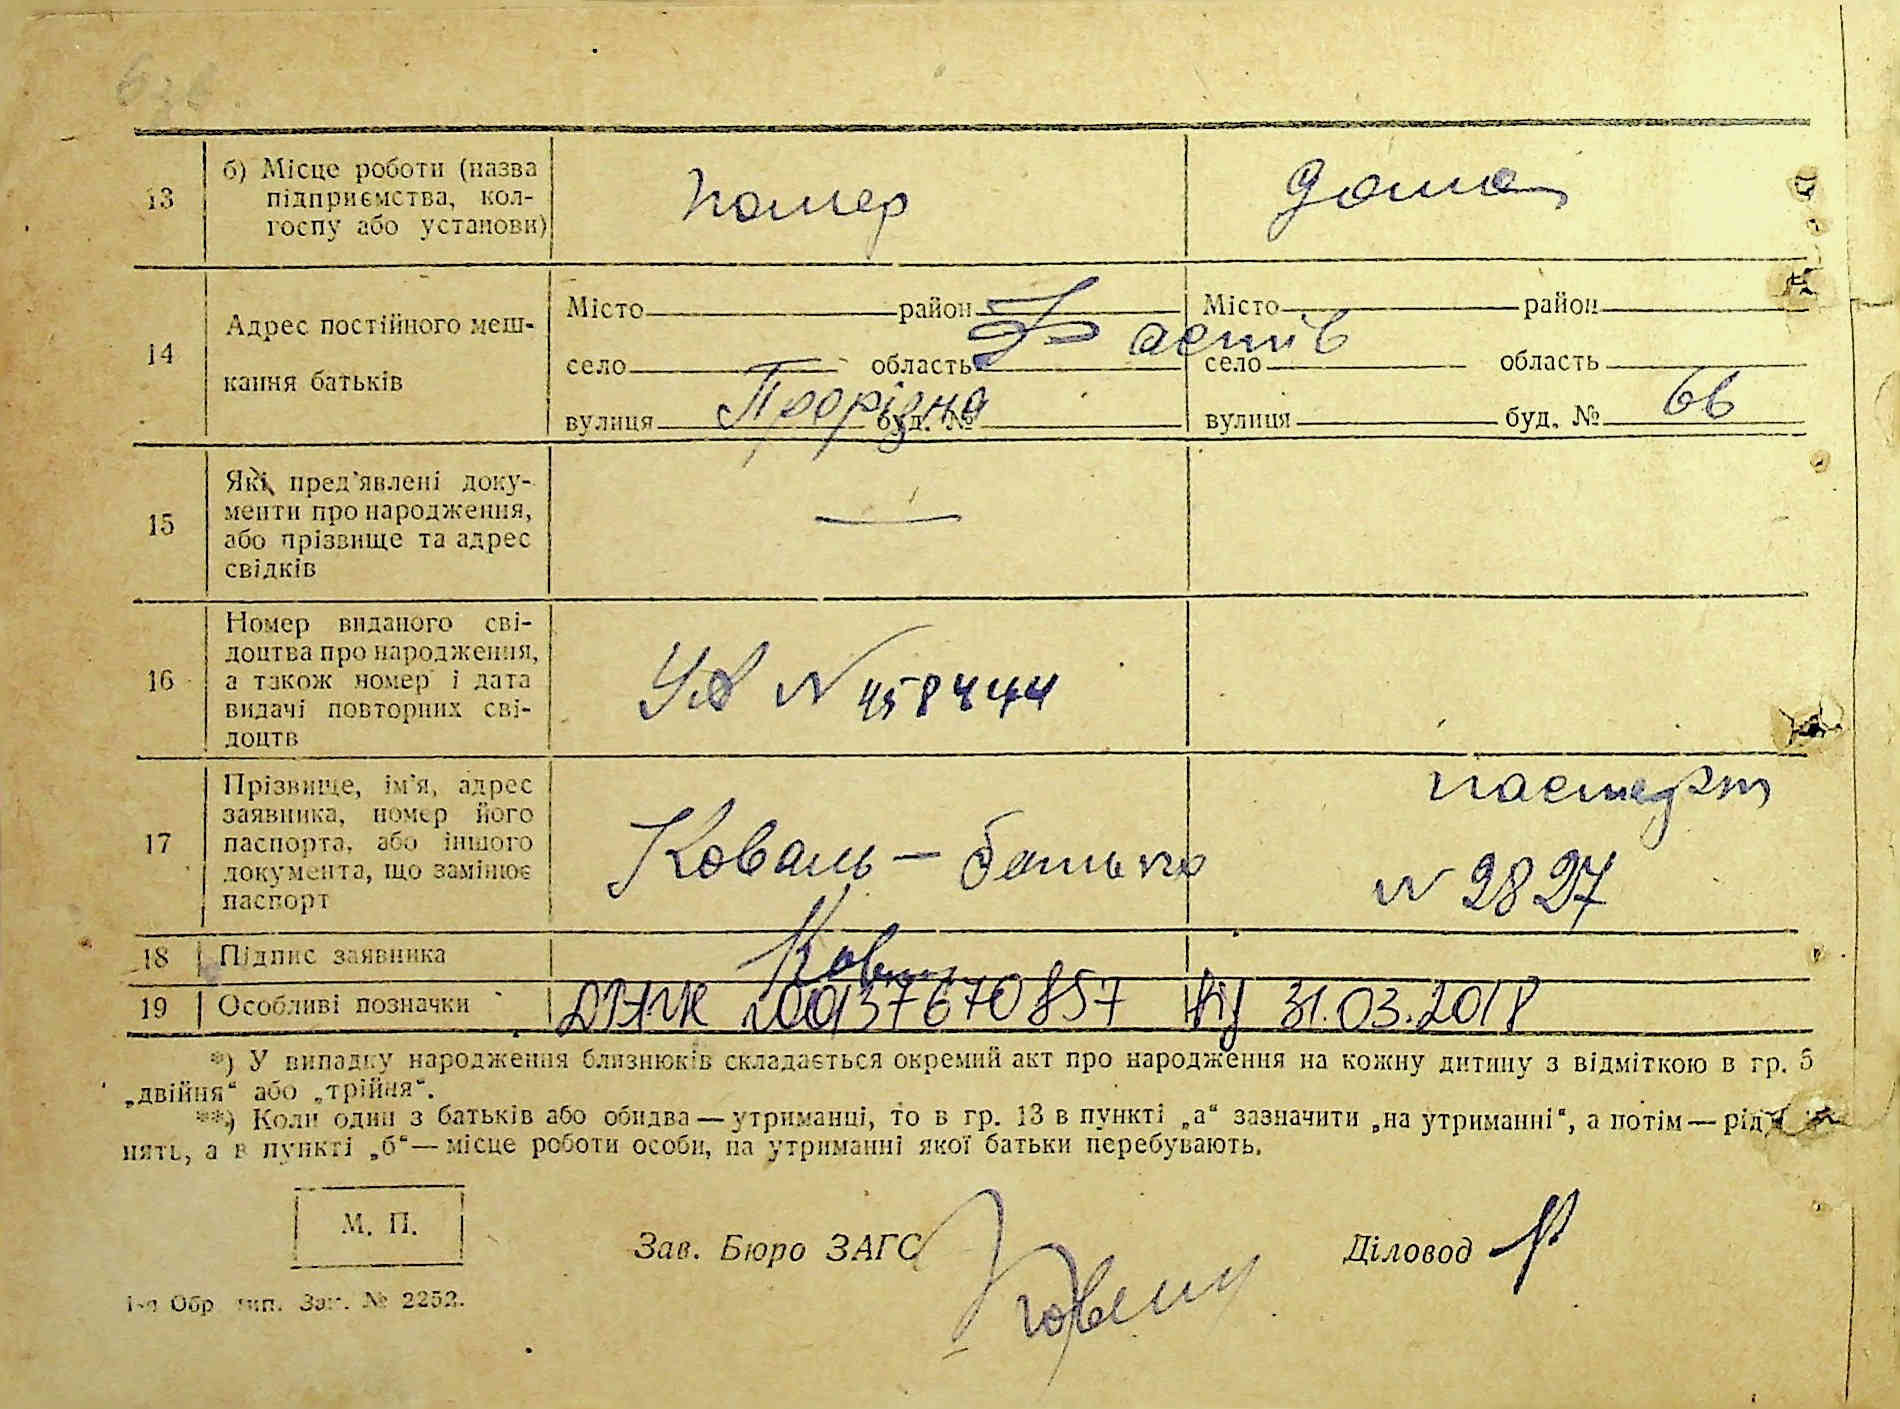 13
б) Місце роботи (назва
підприємства, кол-
госпу або установи)
помер
дома
14
Адрес постійного меш-
кання батьків
Місто район
село область
вулиця буд. №
Місто район
село область
вулиця буд. №
Фастів
Прорізна
66
15
Які пред'явлені доку-
менти про народження,
або прізвище та адрес
свідків
—
16
Номер виданого сві-
доцтва про народження,
а також номер і дата
видачі повторних сві-
доцтв
УА № 458444
17
Прізвище, ім'я, адрес
заявника, номер його
паспорта, або іншого
документа, що замінює
паспорт
Коваль — батько
паспорт
№ 2827
18
Підпис заявника
19
Особливі позначки
00137670857 від 31.03.2018
*) У випадку народження близнюків складається окремий акт про народження на кожну дитину з відміткою в гр. 5
„двійня“ або „трійня“.
**) Коли один з батьків або обидва — утриманці, то в гр. 13 в пункті „а“ зазначити „на утриманні“, а потім — рід
нять, а в пункті „б“ — місце роботи особи, на утриманні якої батьки перебувають.
М. П.
Зав. Бюро ЗАГС
Діловод
1-а Обр. тип. Зак. № 2252.